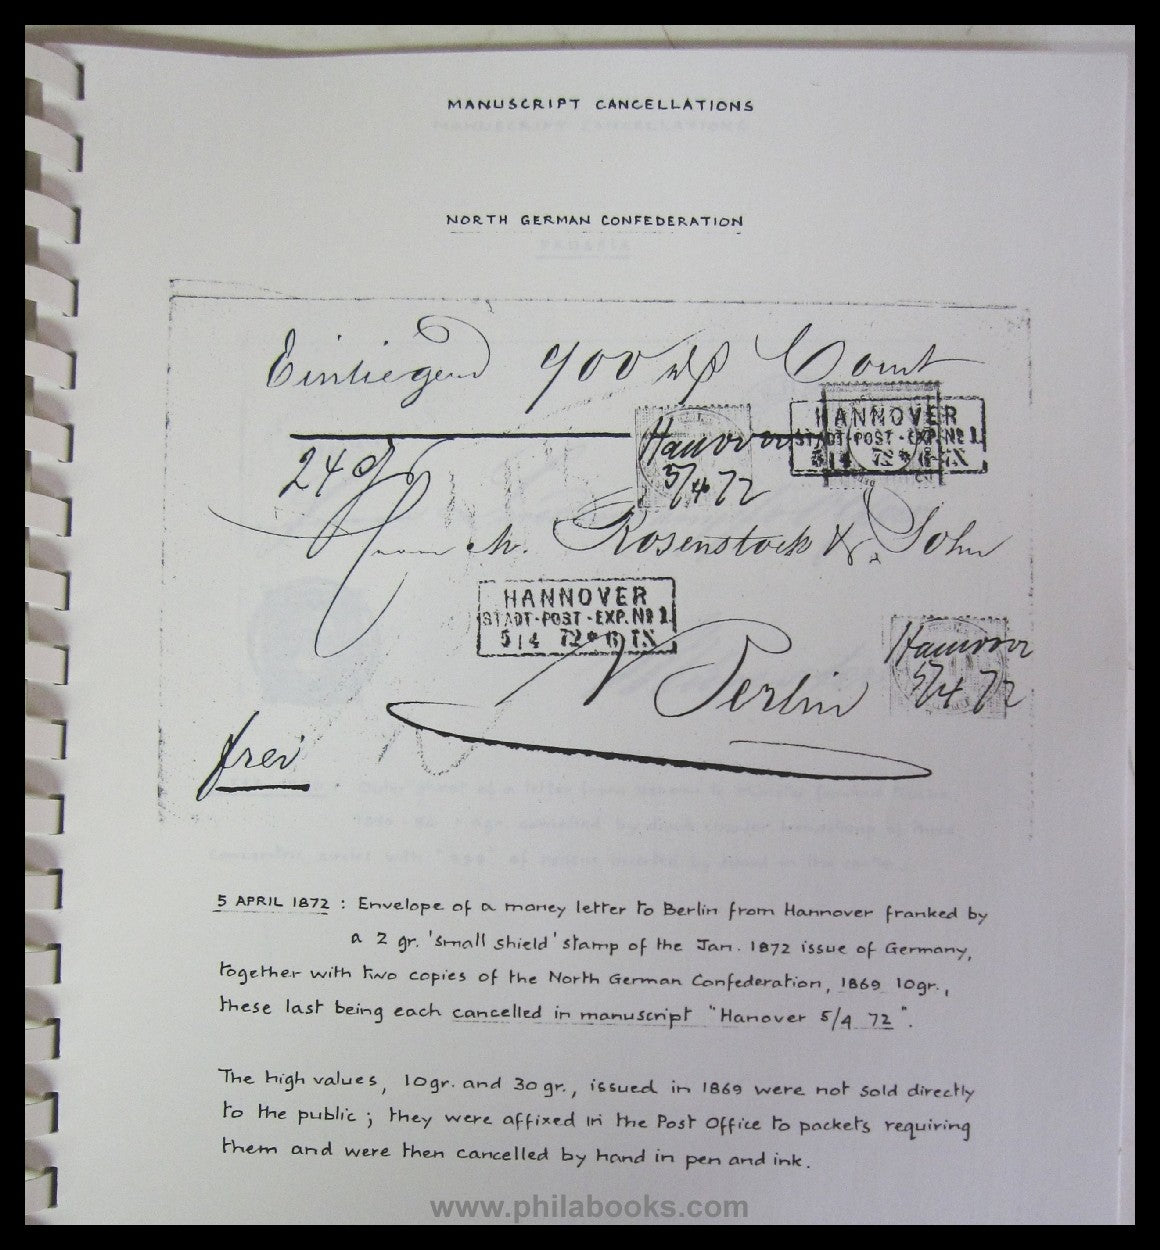 MANUSCRIPT CANCELLATIONS
NORTH GERMAN CONFEDERATION
Einliegend 900 Court
HANNOVER
STADT-POST-EXP. Nº 1.
5 4 72 * 6-7N
Hannover
5/4 72
24
Rosenstock & Sohn
HANNOVER
STADT-POST-EXP. Nº 1.
5 4 72 * 6-7N
Berlin
Hannover
5/4 72
frei
5 APRIL 1872 : Envelope of a money letter to Berlin from Hannover franked by
a 2 gr. 'small shield' stamp of the Jan. 1872 issue of Germany,
together with two copies of the North German Confederation, 1869 10gr.,
these last being each cancelled in manuscript "Hanover 5/4 72".
The high values, 10gr. and 30gr., issued in 1869 were not sold directly
to the public ; they were affixed in the Post Office to packets requiring
them and were then cancelled by hand in pen and ink.
www.philabooks.com